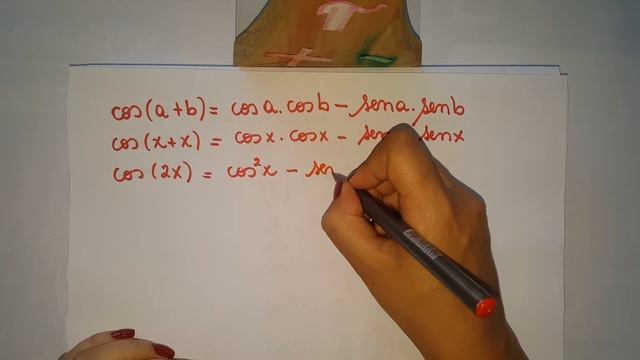 cos(a+b) = cos a . cos b - sen a . sen b
cos(x+x) = cos x . cos x - sen senx
cos(2x) = cos²x - sen